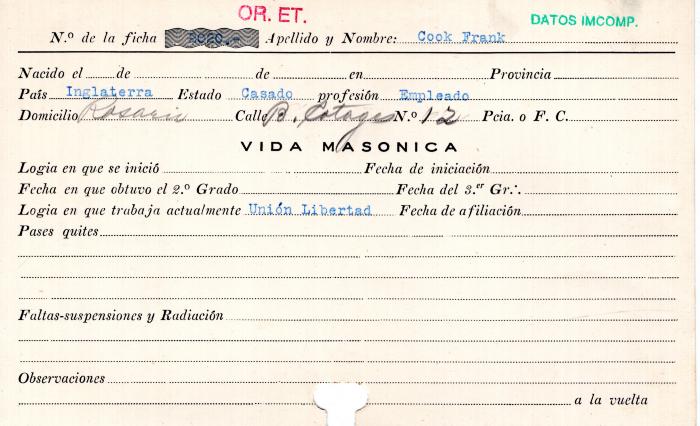 OR. ET.
DATOS IMCOMP.
N.º de la ficha Apellido y Nombre: Cook Frank
Nacido el de de en Provincia
País Inglaterra Estado Casado profesión Empleado
Domicilio Rosario Calle B. Cotages N.º 12 Pcia. o F. C.
VIDA MASONICA
Logia en que se inició Fecha de iniciación
Fecha en que obtuvo el 2.º Grado Fecha del 3.er Gr∴
Logia en que trabaja actualmente Unión Libertad Fecha de afiliación
Pases quites
Faltas-suspensiones y Radiación
Observaciones
a la vuelta